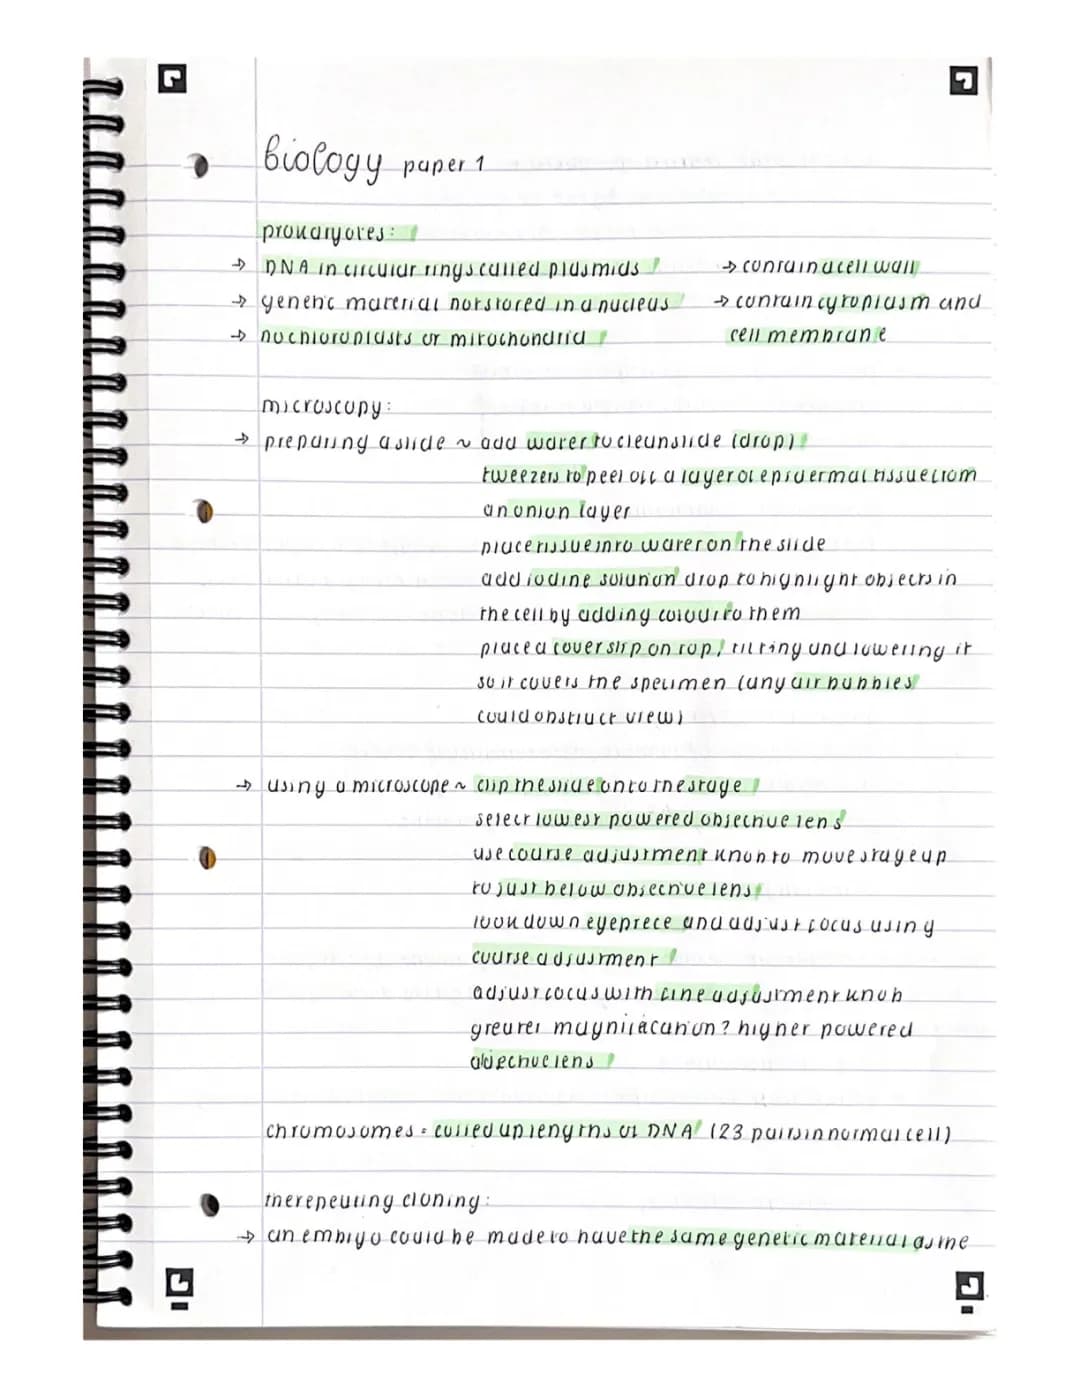 biology paper 1
prokaryotes:
→ DNA in circular rings called plasmids → contain a cell wall
→ genetic material not stored in a nucleus → contain cytoplasm and
→ no chloroplasts or mitochondria cell membrane
microscopy:
→ preparing a slide ~ add water to clean slide (drop)
tweezers to peel off a layer of epidermal tissue from
an onion layer
place tissue into water on the slide
add iodine solution drop to highlight objects in
the cell by adding colour to them
place a cover slip on top, tilting and lowering it
so it covers the specimen (any air bubbles
could obstruct view)
→ using a microscope ~ clip the slide onto the stage
select lowest powered objective lens
use course adjustment knob to move stage up
to just below objective lens
look down eyepiece and adjust focus using
course adjustment
adjust focus with fine adjustment knob
greater magnification? higher powered
objective lens
chromosomes = coiled up lengths of DNA (23 pairs in normal cell)
cloning:
→ an embryo could be made to have the same genetic material as the